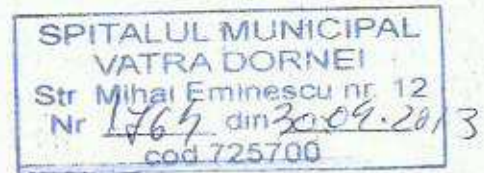 SPITALUL MUNICIPAL
VATRA DORNEI
Str Mihai Eminescu nr. 12
Nr din 30.09.2013
cod 725700